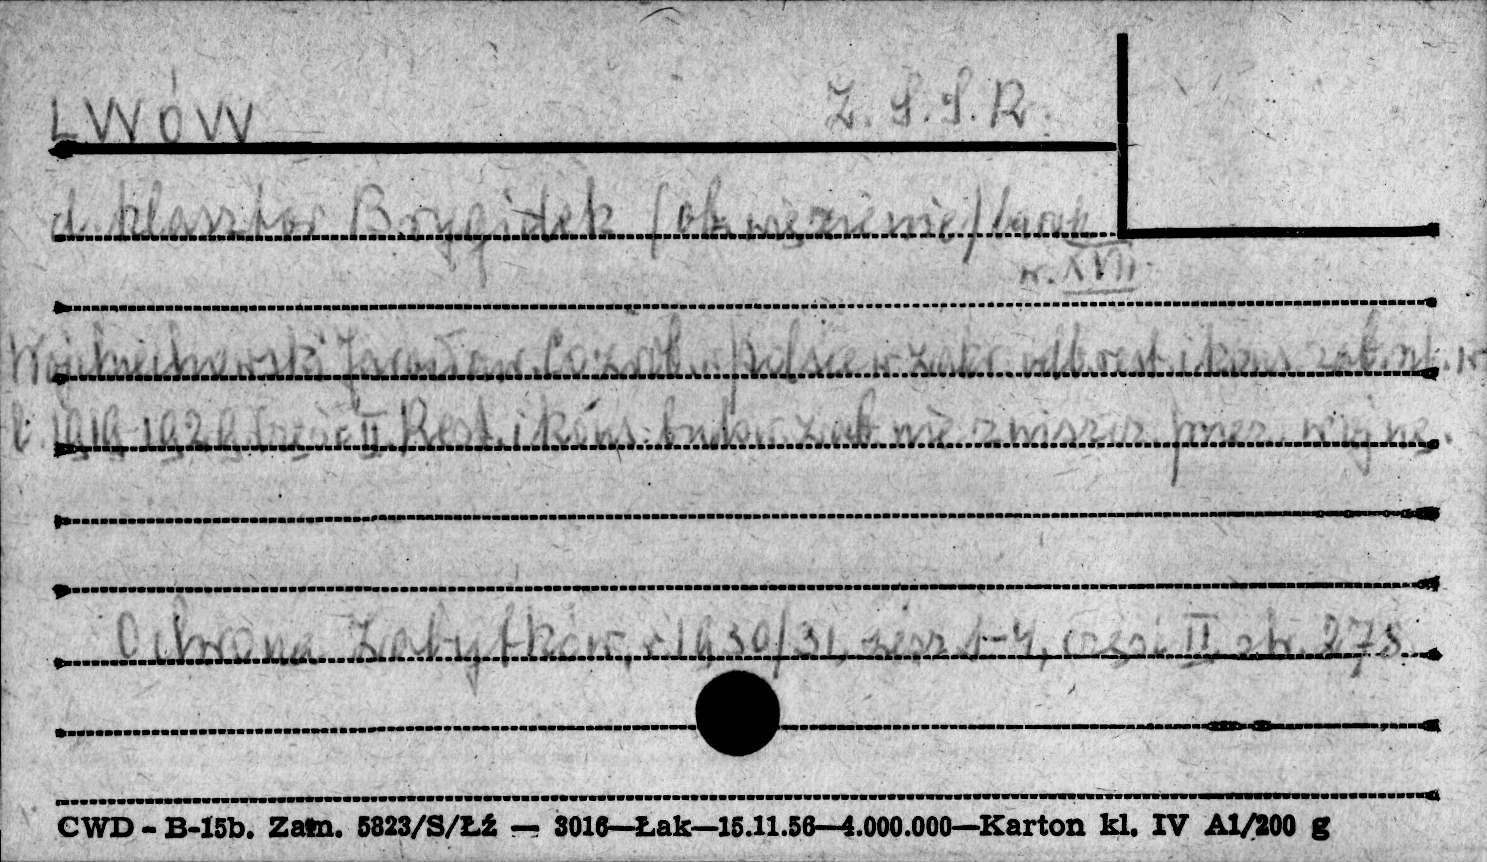 LWÓW Z.S.S.R.
d. klasztor Brygidek (ob. więzienie) barok
w. XVII
Wojciechowski Jarosław. Co zrob. w Polsce w zakr. odb. rest. i kons. zab. szt. w
l. 1919-1929 Część II. Rest. i kons. budow. zab. nie zniszcz. przez wojnę.
Ochrona Zabytków, r. 1930/31, zesz. 1-4, część II, str. 278.
CWD - B-15b. Zam. 5823/S/Łź — 3016—Łak—15.11.56—4.000.000—Karton kl. IV A1/200 g